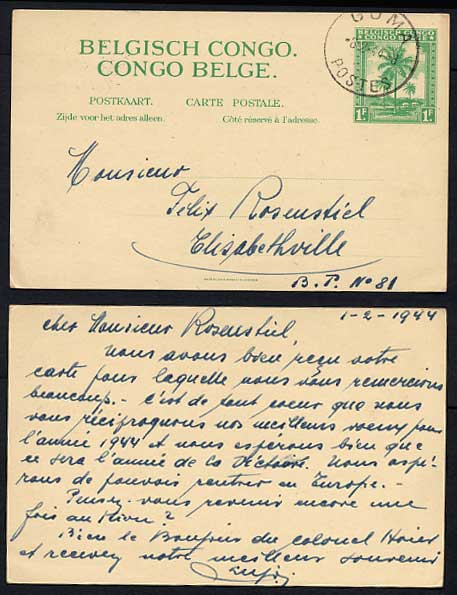 BELGISCH CONGO.
CONGO BELGE.
POSTKAART. CARTE POSTALE.
Zijde voor het adres alleen. Côté réservé à l'adresse.
BELGISCH CONGO
CONGO BELGE
1F 1F
GOMA
POSTES
Monsieur
Félix Rosenstiel
Elisabethville
B.P. No 81
1-2-1944
cher Monsieur Rosenstiel
nous avons bien reçu votre
carte pour laquelle nous vous remercions
beaucoup.- c'est de tout coeur que nous
vous réciproquons nos meilleurs voeux pour
l'année 1944 et nous espérons bien que
ce sera l'année de la Victoire. Nous aspi-
rons de pouvoir rentrer en Europe.-
Pensez-vous revenir encore une
fois au Kivu?
Bien le Bonjour du colonel
et recevez notre meilleur souvenir